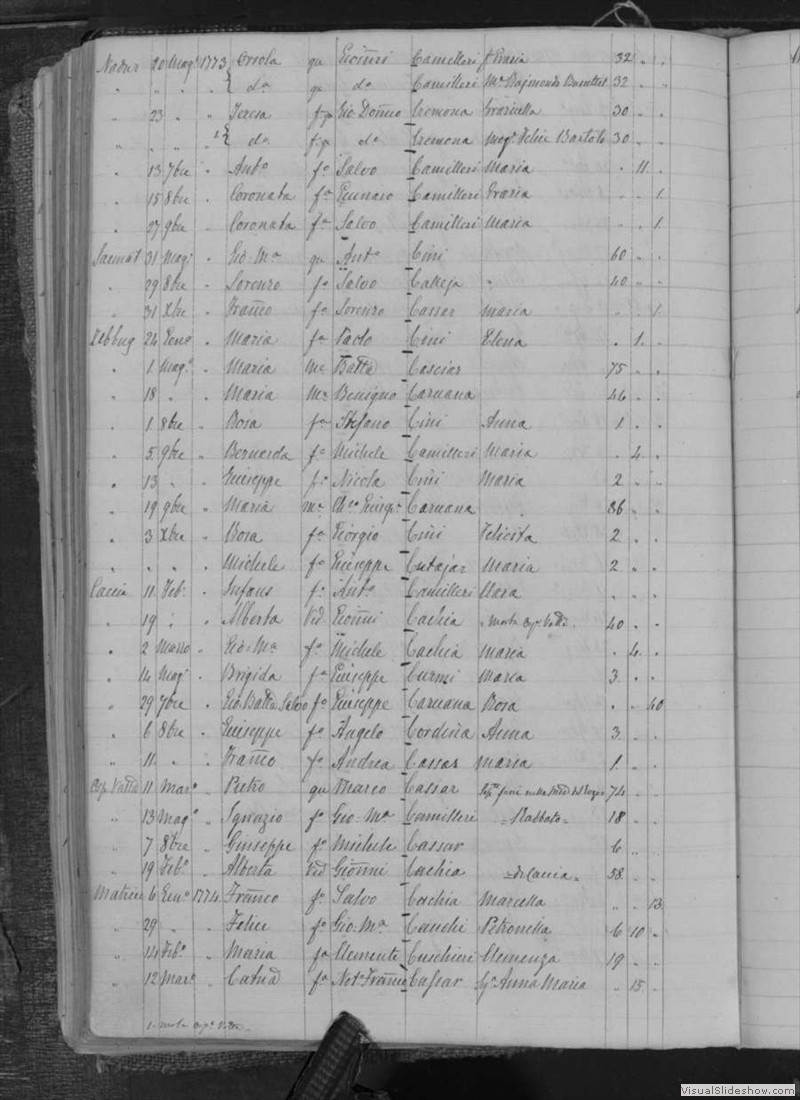 Nadur 20 Mag.o 1773 Orsola qu Gioñni Camilleri + Grazia 32 " "
" " " " { da qu do Camilleri Ma Rajmondo Busuttil 32 " "
" 23 " " Teresa fa Gio Doñnico Cremona Graziella 30 " "
" " " " { da fa do Cremona Mog.e Felice Bartolo 30 " "
" 13 7bre " Anto fo Salvo Camilleri Maria " 11 "
" 15 8bre " Coronata fa Gennaro Camilleri Grazia " " 1
" 27 9bre " Coronata fa Salvo Camilleri Maria " " 1
Sannat 31 Mago " Gio Ma qu Anto Cini 60 " "
" 29 8bre " Lorenzo fo Salvo Calleja " 40 " "
" 31 Xbre " Frañco fo Lorenzo Cassar Maria " " 1
Xebbug 24 Geno " Maria fa Paolo Cini Elena " 1 "
" 1 Mago " Maria Me Batta Casciar 75 " "
" 18 " " Maria Me Benigno Caruana 46 " "
" 1 8bre " Rosa fa Stefano Cini Anna 1 " "
" 5 9bre " Bernarda fa Michele Camilleri Maria " 4 "
" 13 " " Giuseppe fo Nicola Cini Maria 2 " "
" 19 9bre " Maria me Giusepe Caruana " 86 " "
" 3 Xbre " Rosa fa Giorgio Cini Felicita 2 " "
" " " " Michele fo Giuseppe Cutajar Maria 2 " "
Caccia 11 Feb. " Infans fo Anto Camilleri Clara " " "
" 19 " " Alberta Vid Gioñni Cachia " morta 40 " "
" 2 Marzo " Gio Ma fo Michele Cachia Maria " 4 "
" 14 Mago " Brigida fa Giuseppe Curmi Maria 3 " "
" 29 7bre " Gio Batta Salvo fo Giuseppe Caruana Rosa " " 40
" 6 8bre " Giuseppe fo Angelo Cordina Anna 3 " "
" 11 " " Frañco fo Andrea Cassar Maria 1 " "
11 Maro " Pietro qu Marco Cassar 74 " "
" 13 Mago " Ignazio fo Gio Ma Camilleri = Rabbato = 18 " "
" 7 8bre " Giuseppe fo Michele Cassar 6 " "
" 19 Febo " Alberta Vid Gioñni Cachia = di Caccia = 58 " "
Matrice 6 Geno 1774 Frañco fo Salvo Cachia Marcella " " 13
" 29 " " Felice fo Gio Ma Cauchi Petronella 6 10 "
" 14 Febo " Maria fa Clemente Cuschieri Clemenza 19 " "
" 12 Maro " Catna fa Noto Frañco Cassar Anna Maria " 15 "
1 morta
VisualSlideshow.com